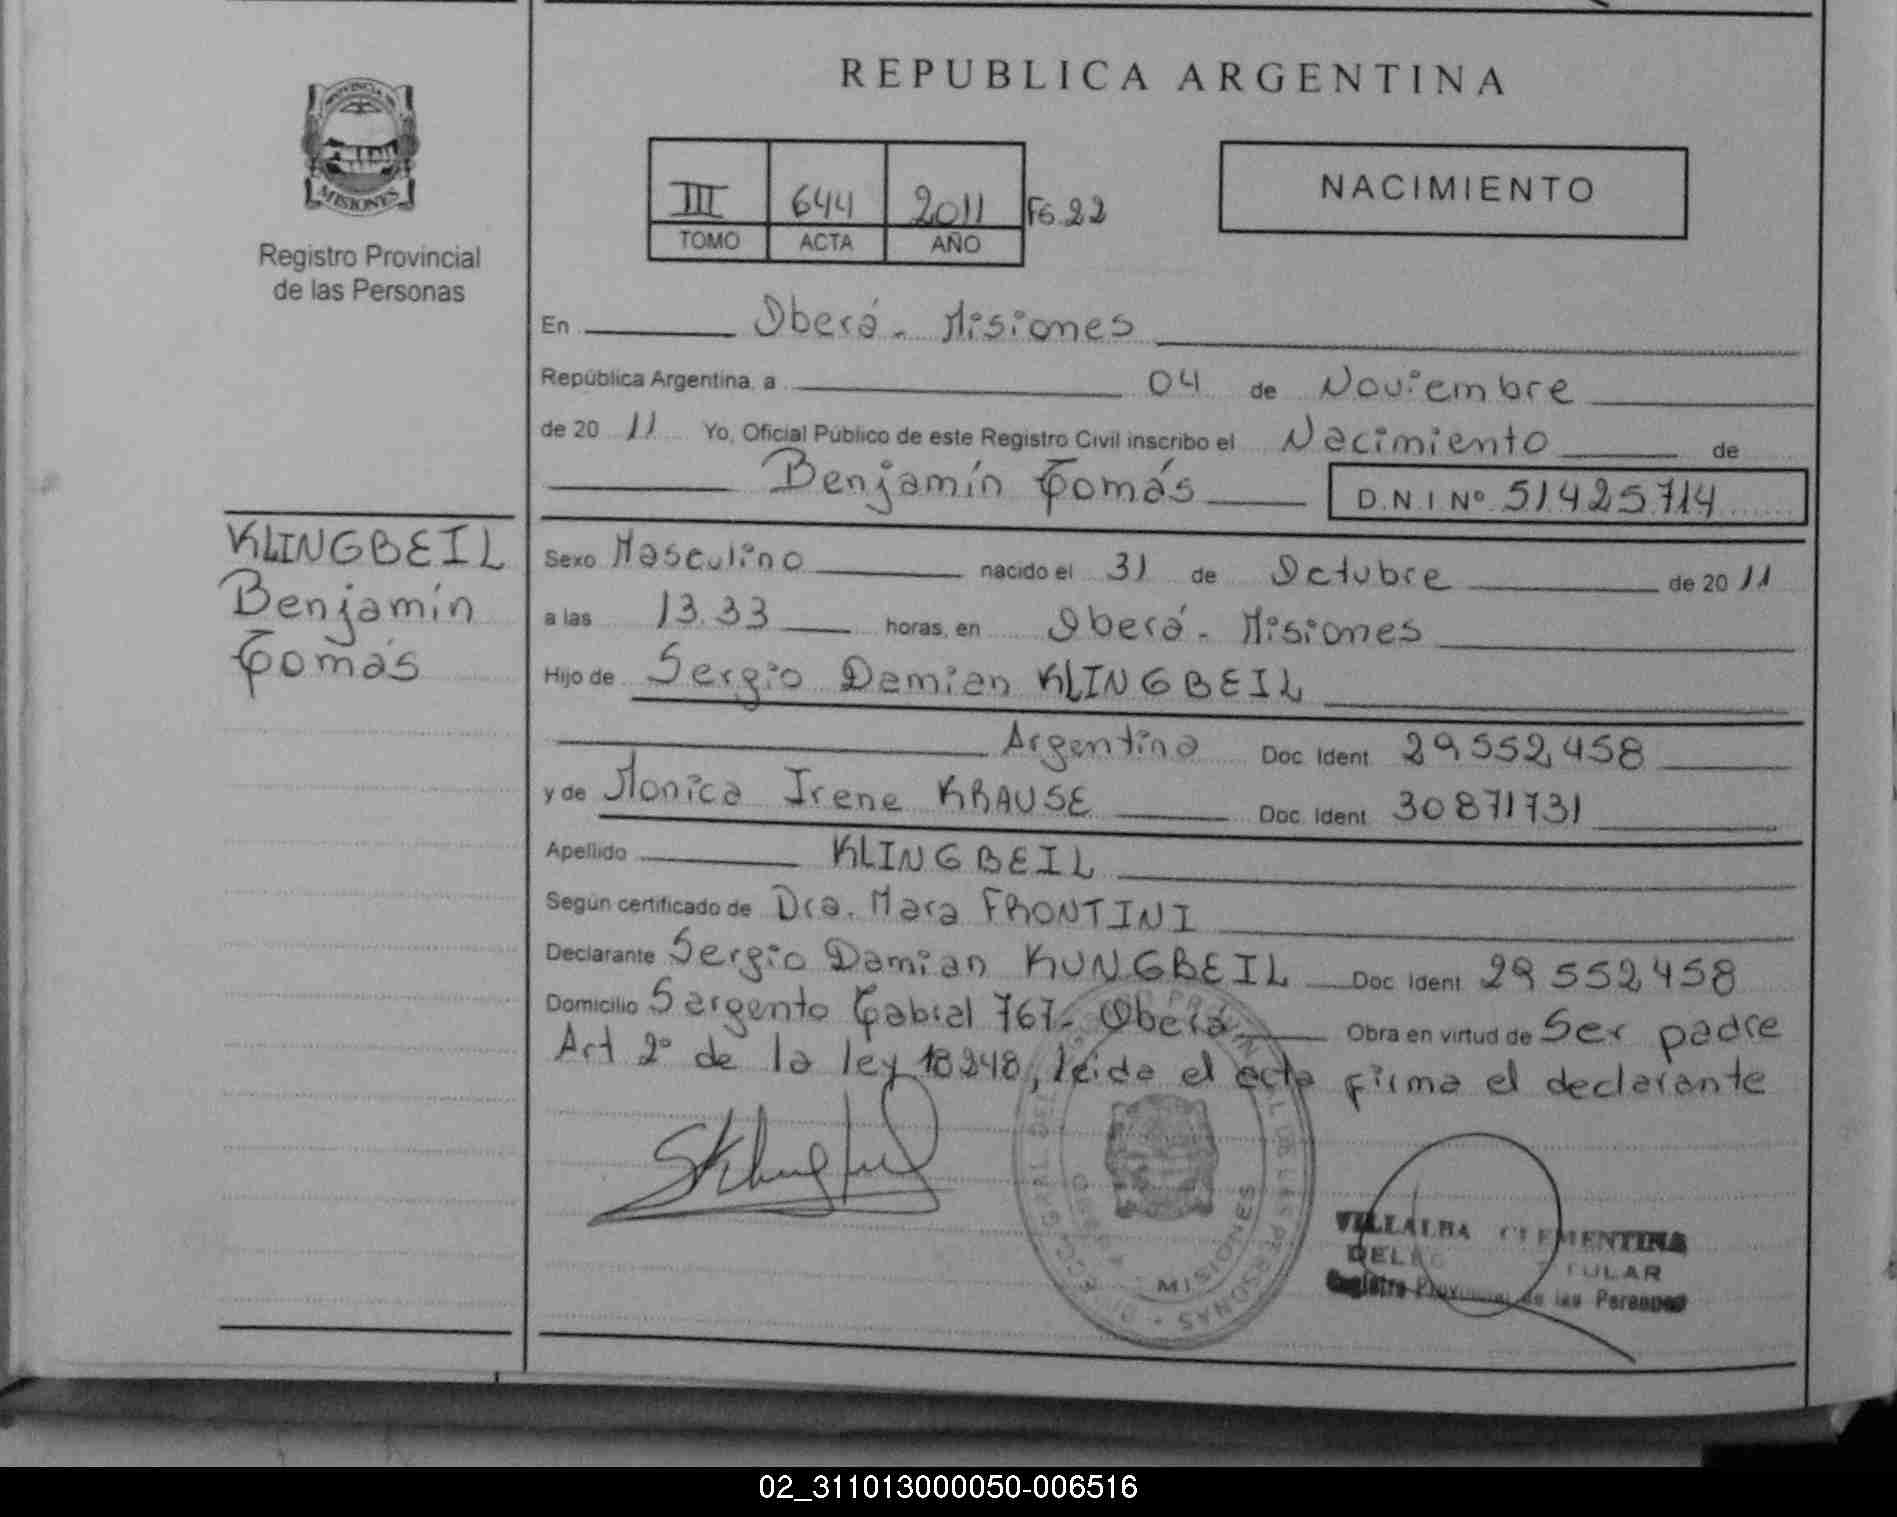 REPUBLICA ARGENTINA
PROVINCIA DE
MISIONES
Registro Provincial
de las Personas
III 644 2011 Fº 22
TOMO ACTA AÑO
NACIMIENTO
En Oberá - Misiones
República Argentina, a 04 de Noviembre
de 20 11 Yo, Oficial Público de este Registro Civil inscribo el Nacimiento de
Benjamín Tomás D.N.I Nº 51425714
KLINGBEIL
Benjamín
Tomás
Sexo Masculino nacido el 31 de Octubre de 20 11
a las 13.33 horas, en Oberá - Misiones
Hijo de Sergio Damian KLINGBEIL
Argentina Doc. Ident. 29552458
y de Monica Irene KRAUSE Doc. Ident. 30871731
Apellido KLINGBEIL
Según certificado de Dra. Mara FRONTINI
Declarante Sergio Damian KLINGBEIL Doc. Ident. 29552458
Domicilio Sargento Cabral 767- Oberá Obra en virtud de Ser padre
Art 2º de la ley 18248, leida el acta firma el declarante
MISIONES
VILLALBA CLEMENTINA
Registro Provincial de las Personas
02_311013000050-006516